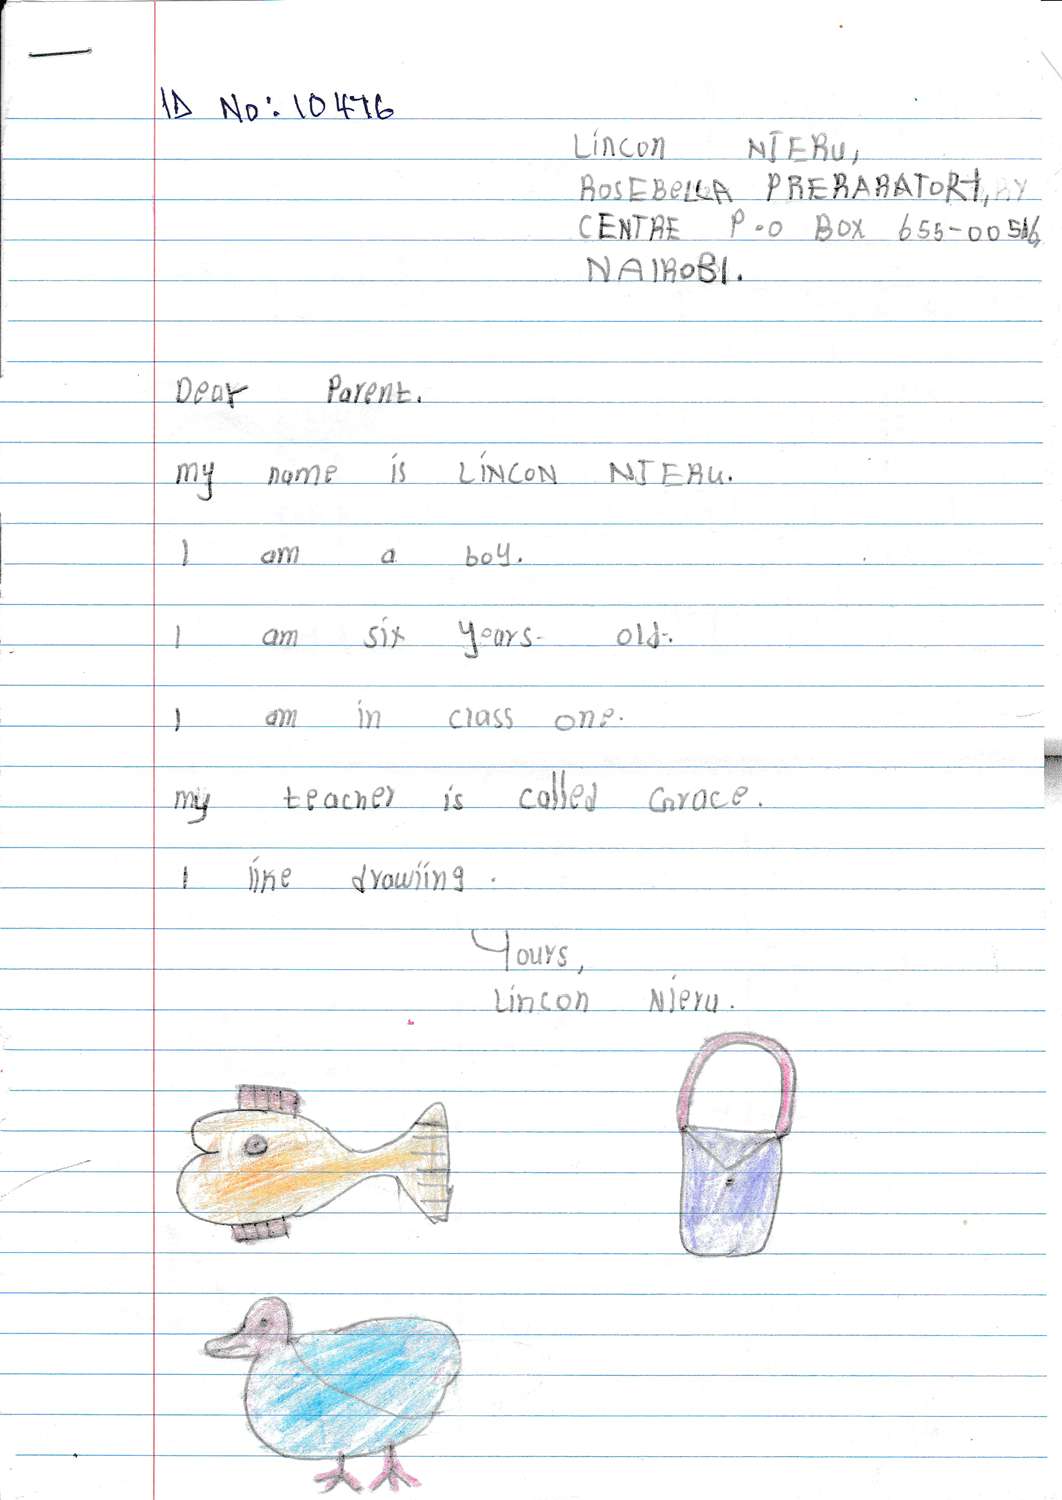 ID No: 10476
Lincon NJERU,
ROSEBELLA PRERARATORY, RY
CENTRE P.O BOX 655-00516,
NAIROBI.
Dear Parent.
my name is LiNCON NJERU.
I am a boy.
I am six years old.
I am in class one.
my teacher is called Grace.
I like drawiing.
Yours,
Lincon Njeru.